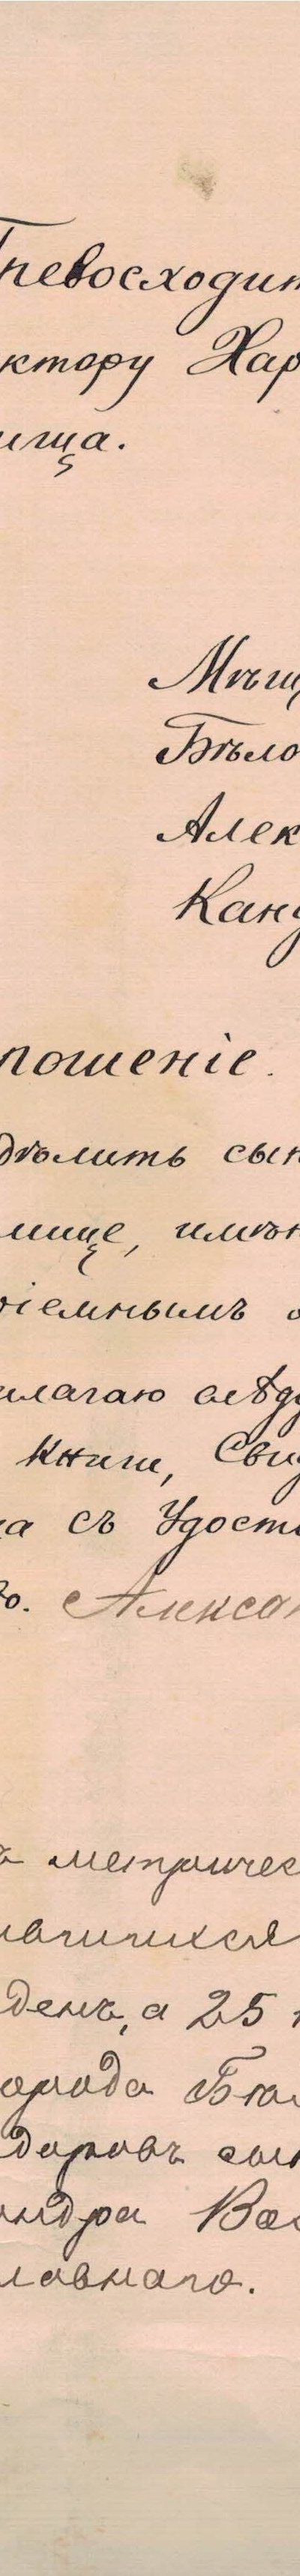 Превосходит
ктору Хар
ища.
Мѣщ
Бѣло
Алек
Канд
рошеніе.
дѣлить сын
лище, имѣн
ріемнымъ
илагаю слѣду
книги, Сви
ка съ Удосто
го. Алексан
метричес
ившихся
день, а 25
орода Бѣл
доровъ сын
андра Вас
лавнаго.